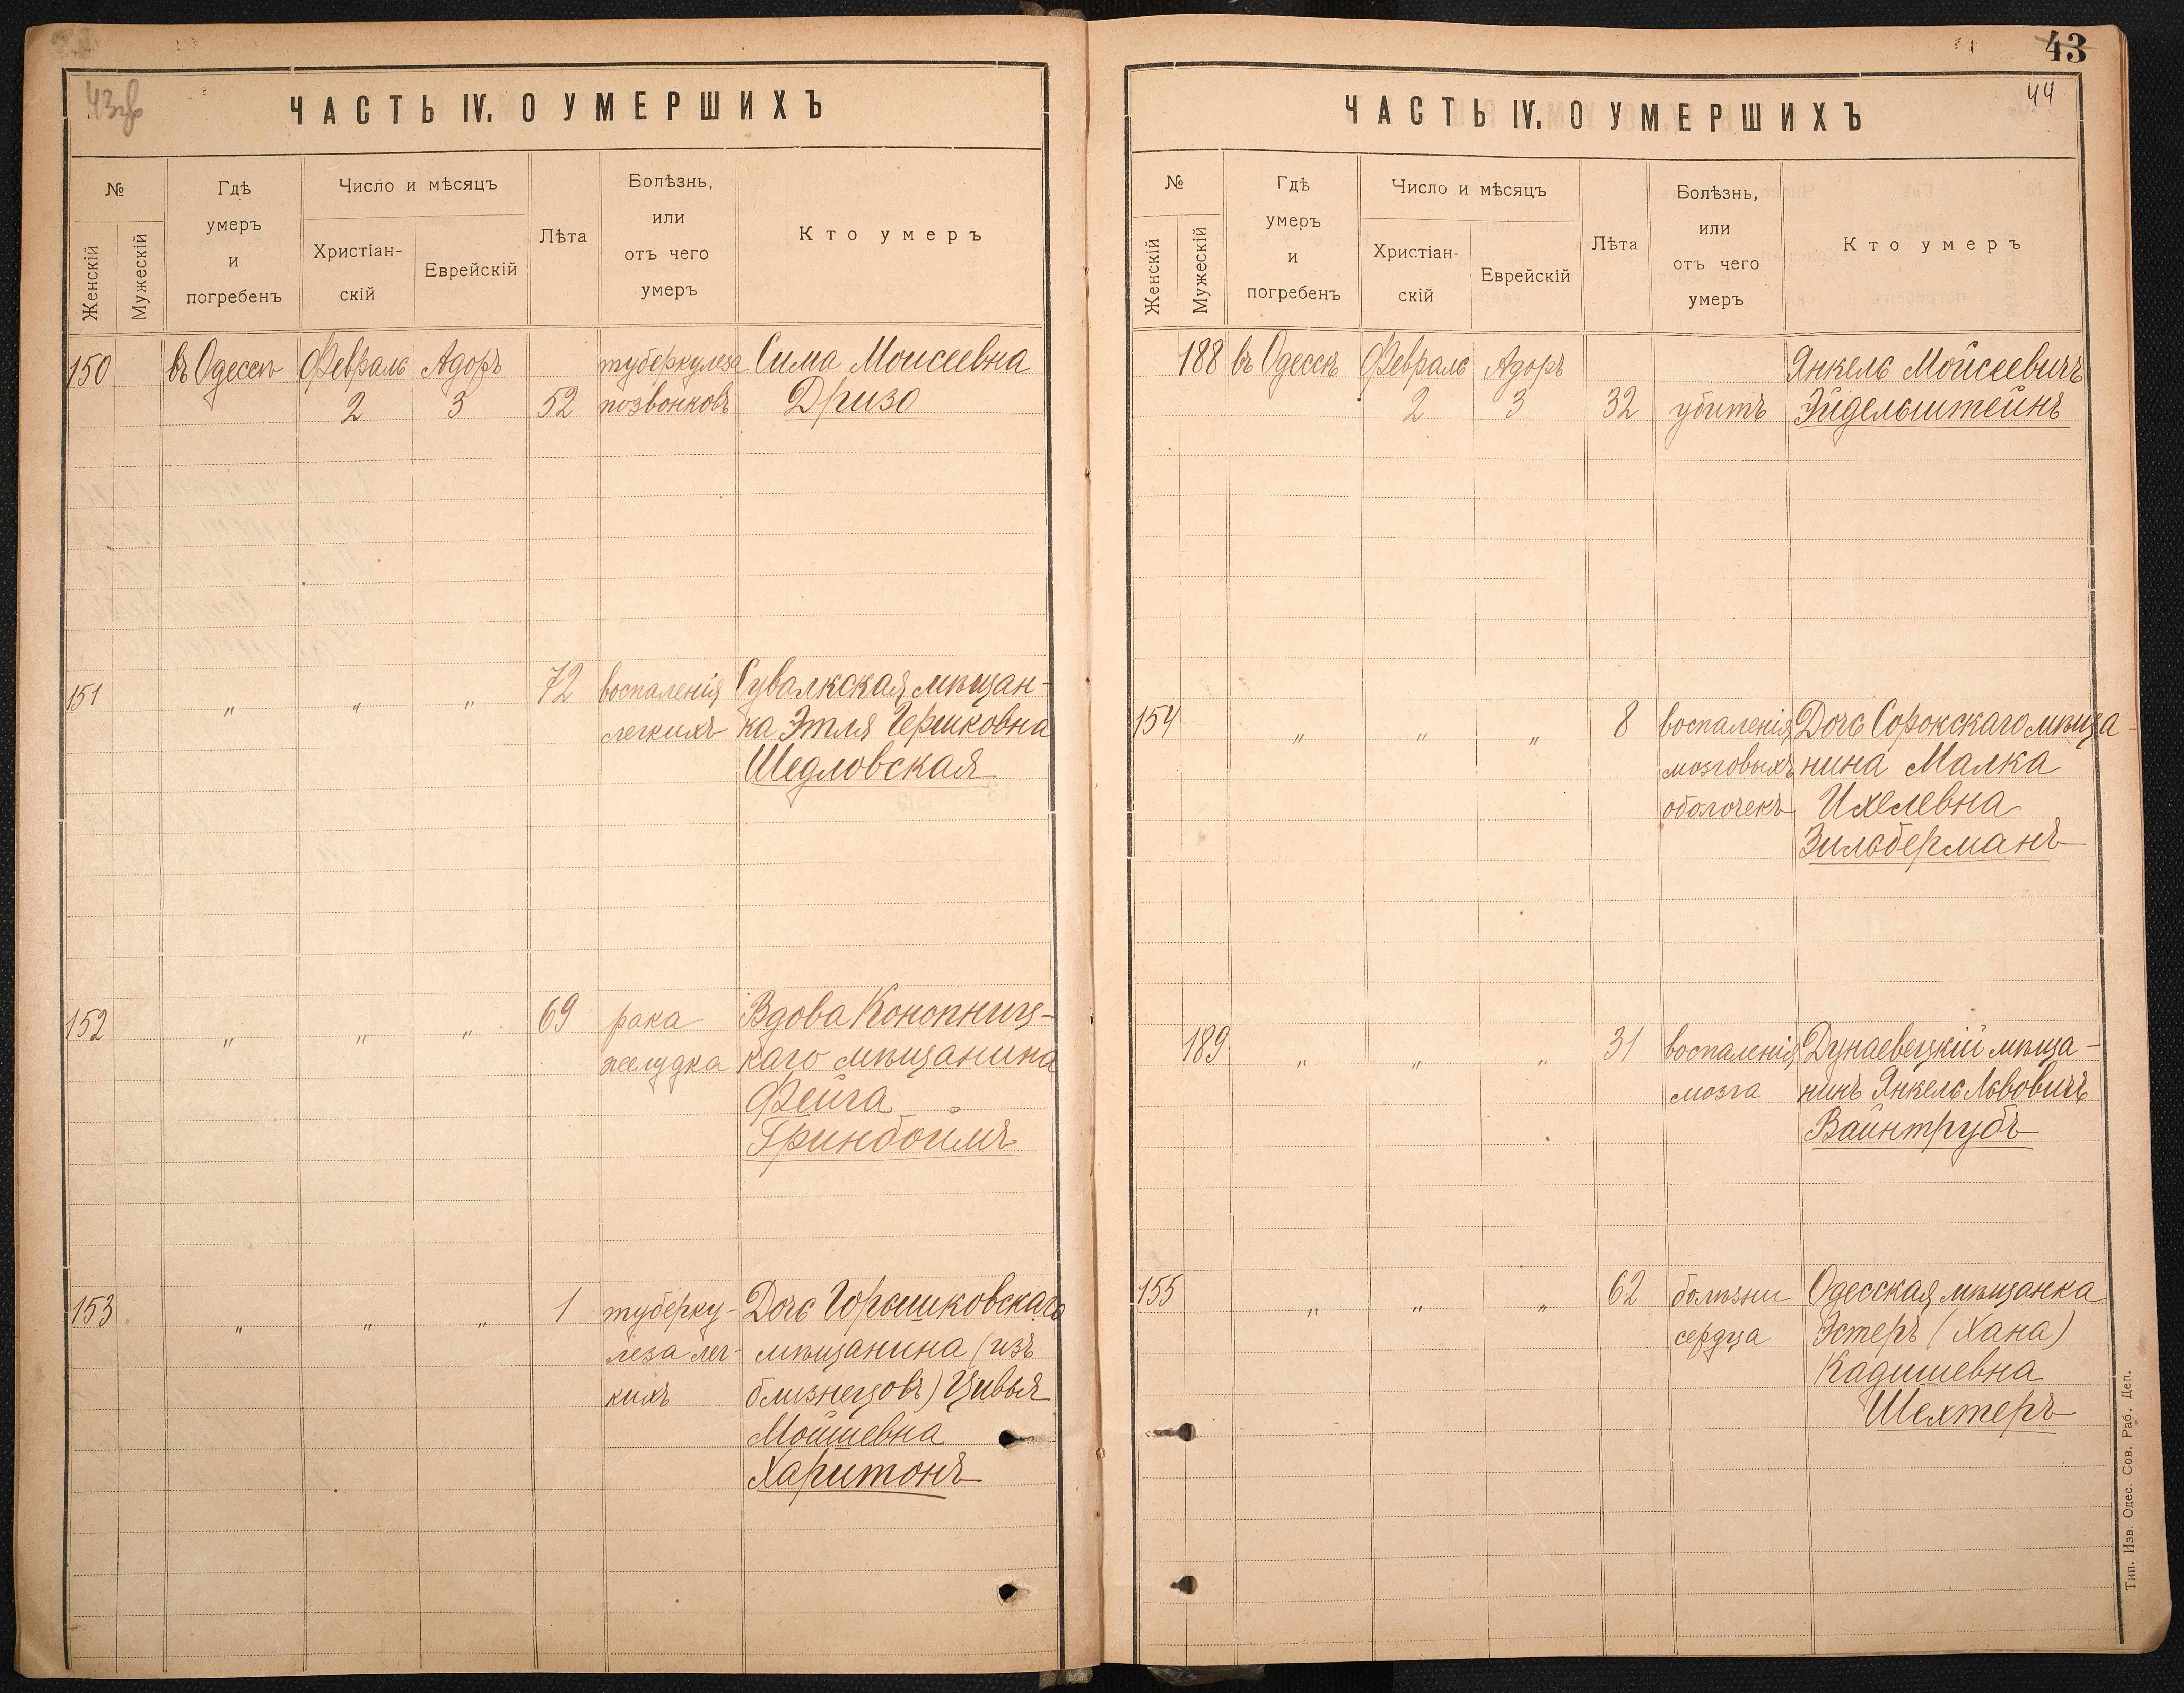 43об
ЧАСТЬ IV. О УМЕРШИХЪ
№
Женскій
Мужескій
Гдѣ
умеръ
и
погребенъ
Число и мѣсяцъ
Христіан-
скій
Еврейскій
Лѣта
Болѣзнь,
или
отъ чего
умеръ
Кто умеръ
150 въ Одессѣ Февраль Адоръ туберкулеза Сима Моисеевна
2 3 52 позвонковъ Дризо
151 " " " 72 воспаленія Сувалкская мѣщан-
легкихъ ка Этля Гершковна
Шедловская
152 " " " 69 рака Вдова Конопниц-
желудка каго мѣщанина
Фейга
Гринбоймъ
153 " " " 1 туберку- Дочь Горышковскаго
леза лег- мѣщанина (изъ
кихъ близнецовъ) Цивья
Мошиевна
Харитонъ
43
44
ЧАСТЬ IV. О УМЕРШИХЪ
№
Женскій
Мужескій
Гдѣ
умеръ
и
погребенъ
Число и мѣсяцъ
Христіан-
скій
Еврейскій
Лѣта
Болѣзнь,
или
отъ чего
умеръ
Кто умеръ
188 въ Одессѣ Февраль Адоръ Янкель Мойсеевичъ
2 3 32 убитъ Эйдельштейнъ
154 " " " 8 воспаленія Дочь Сорокскаго мѣща-
мозговыхъ нина Малка
оболочекъ Ихелевна
Зильберманъ
189 " " " 31 воспаленія Дунаевецкій мѣща-
мозга нинъ Янкель Львовичъ
Вайнтрубъ
155 " " " 62 болѣзни Одесская мѣщанка
сердца Эстеръ (Хана)
Кадишевна
Шехтеръ
Тип. Изв. Одес. Сов. Раб. Деп.